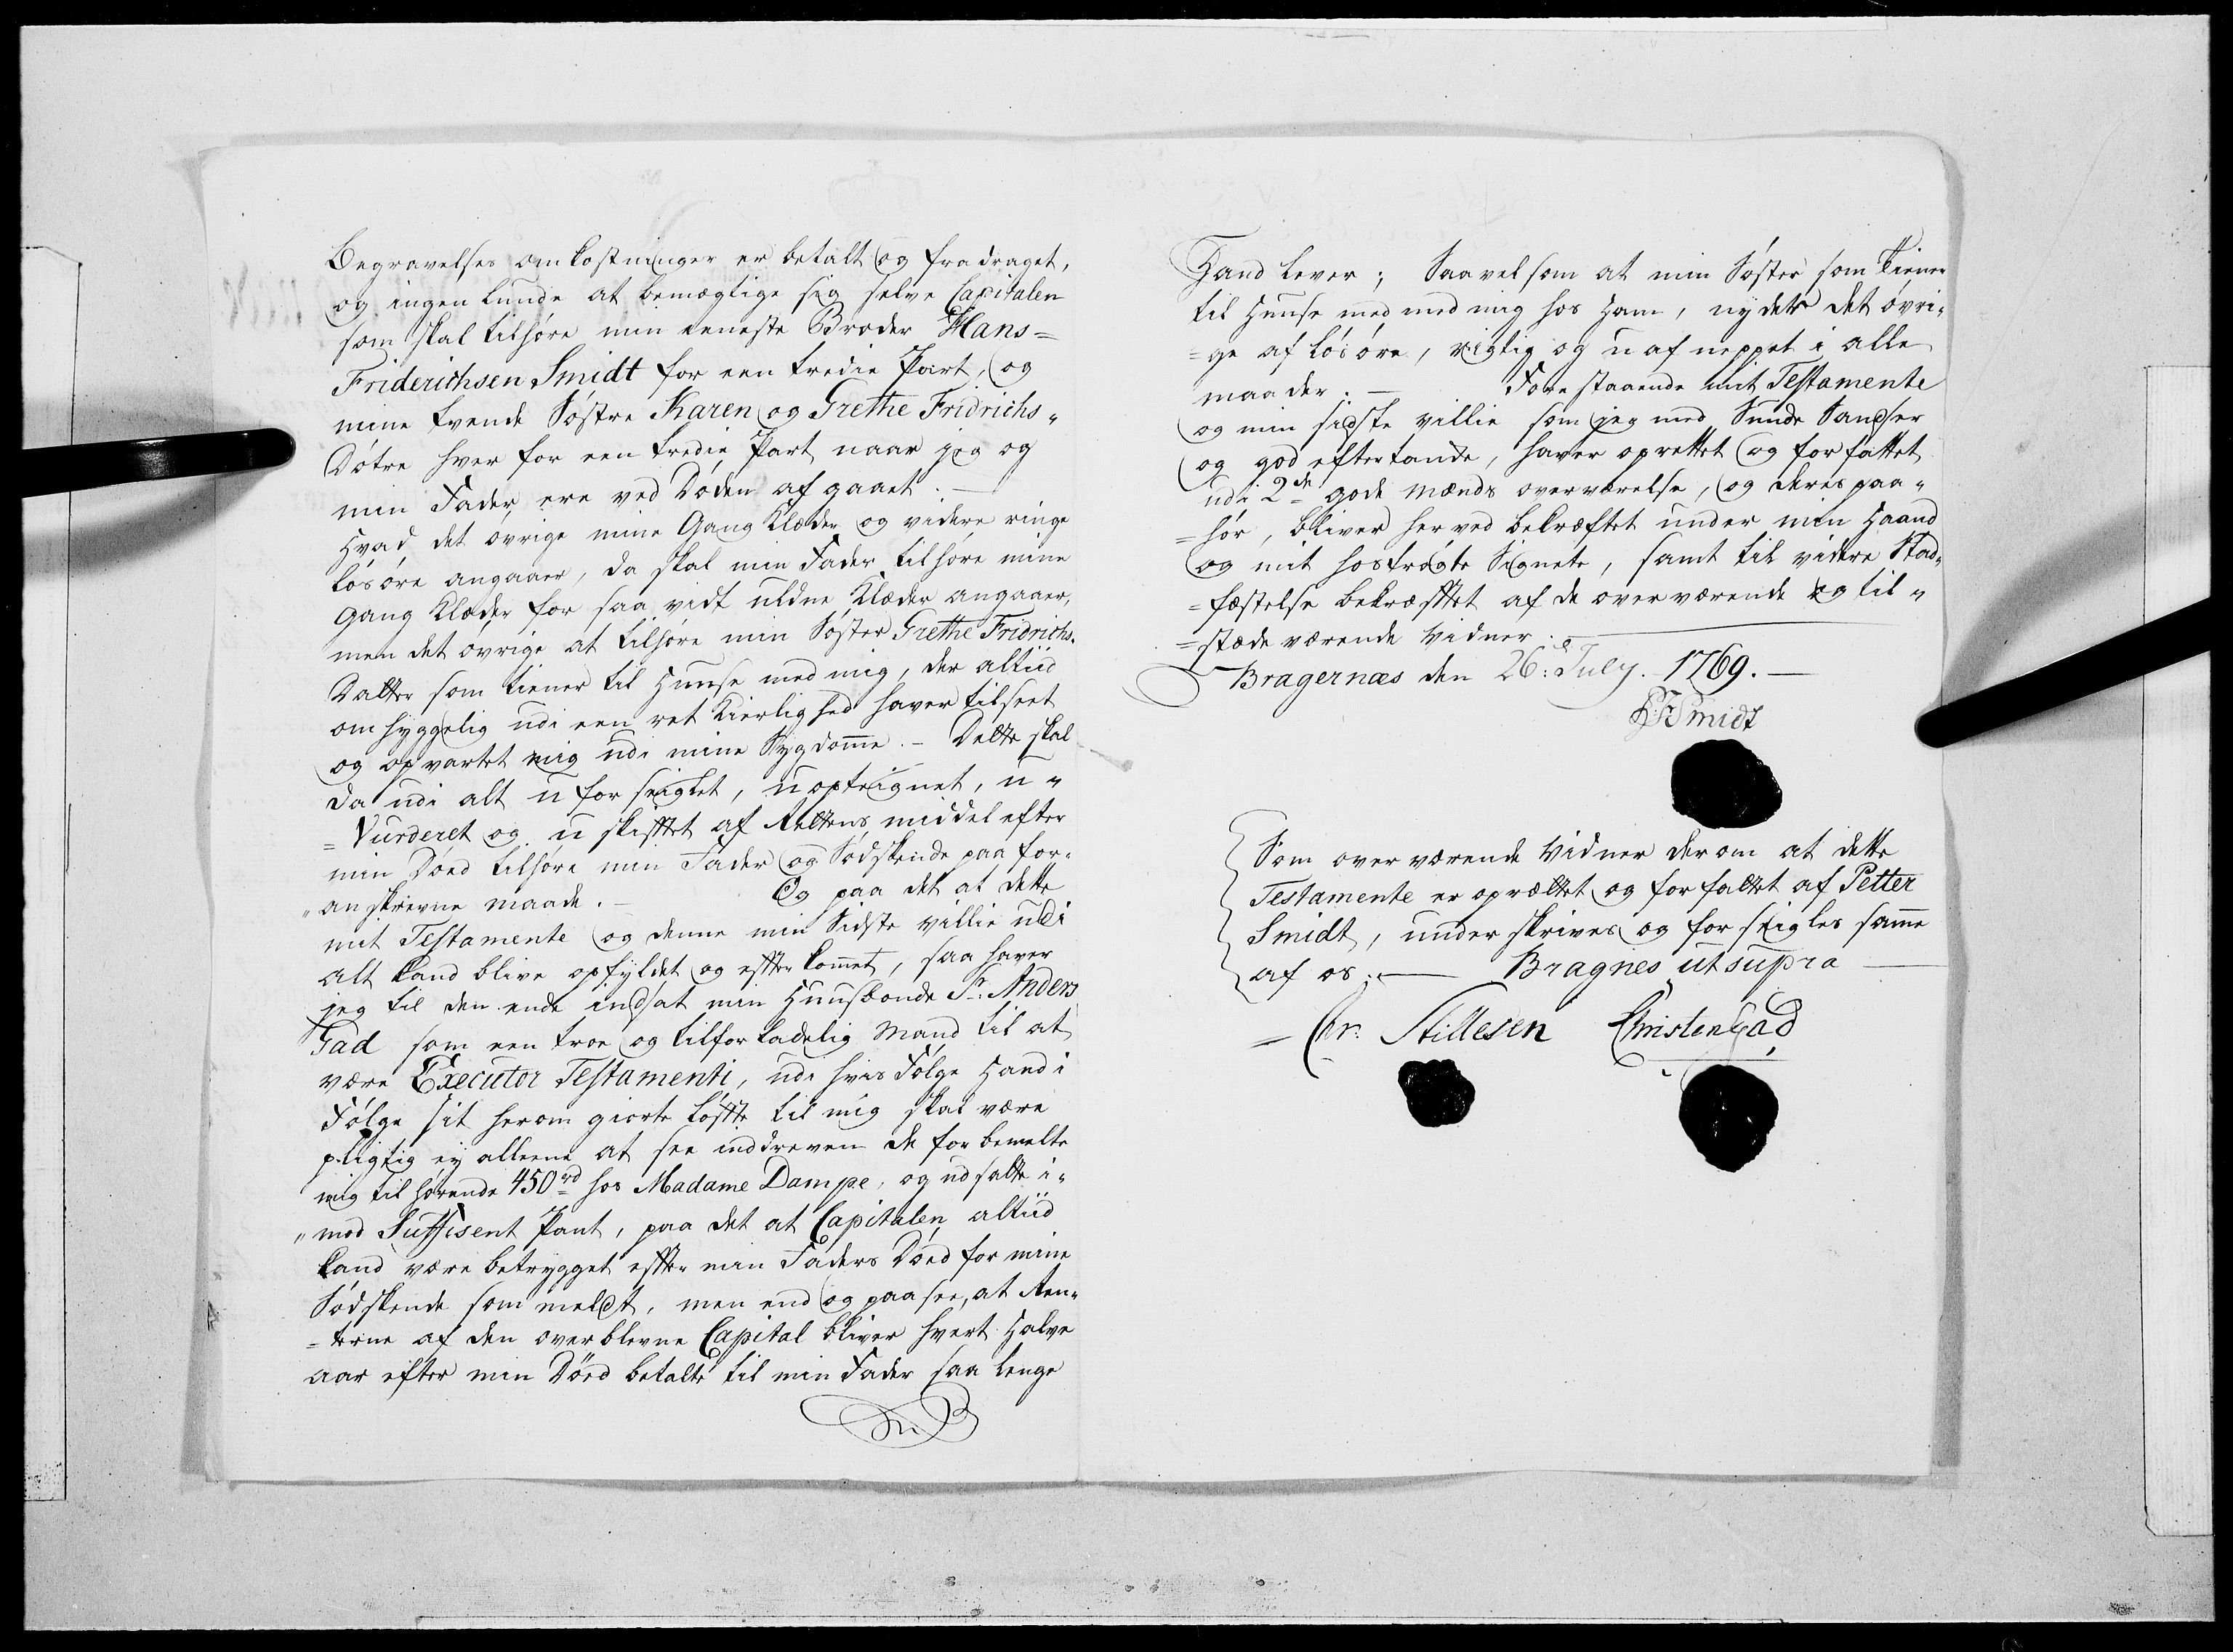 Begravelses omkostninger er betalt og fradraget,
og ingenlunde at bemægtige sig selve Capitalen
som skal tilhøre min eeneste Broder Hans=
Friderichsen Smidt for een tredie Part, og
mine tvende Søstre Karen og Grethe Fridrichs„
Døtre hver for een tredie Part naar jeg og
min Fader ere ved Døden afgaaet. —
Hvad det øvrige mine Gang Klæder og videre ringe
løsøre angaaer, da skal min Fader tilhøre mine
Gang Klæder for saa vidt uldne Klæder angaaer,
men det øvrige at tilhøre min Søster Grethe Fridrichs„
Datter som tiener til Huuse med mig, der altiid
omhyggelig udi een ret Kierlighed haver tilseet
og opvartet mig udi mine Sygdomme. — Dette skal
da udi alt uforseiglet, uopteignet, u„
=Vurderet og uskifftet af Rettens middel efter
min Død tilhøre min Fader og Sødskende paa for„
„anskrevne maade. — Og paa det at dette
mit Testamente og denne min Sidste villie udi
alt kand blive opfyldet og effterkommet, saa haver
jeg til den ende indsat min Huusbonde Sr. Anders
Gad som een troe og tilforladelig Mand til at
være Executor Testamenti, udi hvis Følge Hand i
Følge sit herom giorte løffte til mig skal være
pligtig ey alleene at see inddreven de forbemelte
mig tilhørende 450 rd hos Madame Dampe, og udsatte i„
„mod Suffisent Pant, paa det at Capitalen altiid
kand være betrygget effter min Faders Død for mine
Sødskende som meldt, men end og paasee, at Ren„
=terne af den overblevne Capital bliver hvert Halve
aar efter min Død betalte til min Fader saa lenge
Hand lever; Saavelsom at min Søster som tiener
til Huuse med med mig hos Ham, nyder det øvri„
=ge af løsøre, rigtig og uafneppet i alle
maader. — Forestaaende mit Testamente
og min sidste villie som jeg med Sunde Sandser
og god eftertande, haver oprettet og forfattet
udi 2de gode Mænds overværelse, og deres paa„
=hør, bliver herved bekræftet under min Haand
og mit hostrøgte Signete, samt til videre Stad„
=fæstelse bekræfftet af de overværende og til„
=stæde værende Vidner: —
Bragernæs den 26: July. 1769. —
P:F:Smidt
Som overværende Vidner derom at dette
Testamente er oprættet og forfattet af Petter
Smidt, underskrives og forseigles samme
af os: — Bragnes ut supra —
= Chr: Stillesen Christen Gad